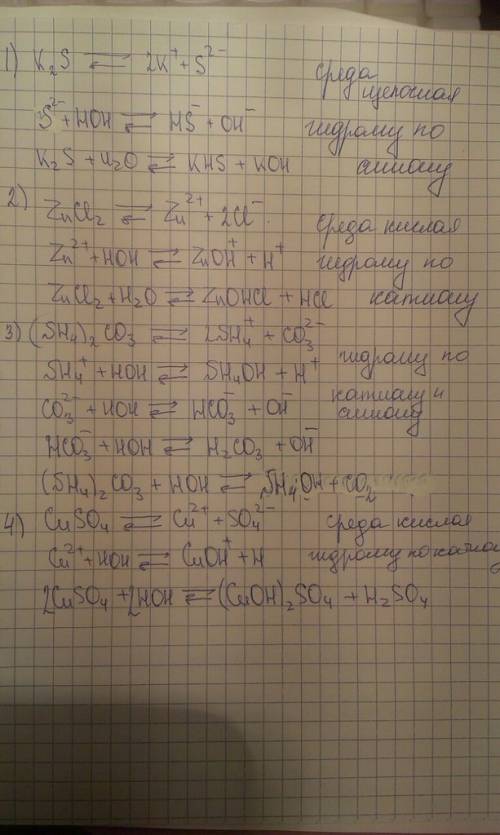 1) K₂S ⇄ 2K⁺ + S²⁻ среда щелочная
S²⁻ + HOH ⇄ HS⁻ + OH⁻ гидролиз по
K₂S + H₂O ⇄ KHS + KOH аниону
2) ZnCl₂ ⇄ Zn²⁺ + 2Cl⁻. среда кислая
Zn²⁺ + HOH ⇄ ZnOH⁺ + H⁺ гидролиз по
ZnCl₂ + H₂O ⇄ ZnOHCl + HCl катиону
3) (NH₄)₂CO₃ ⇄ 2NH₄⁺ + CO₃²⁻
NH₄⁺ + HOH ⇄ NH₄OH + H⁺ гидролиз по
CO₃²⁻ + HOH ⇄ HCO₃⁻ + OH⁻ катиону и аниону
HCO₃⁻ + HOH ⇄ H₂CO₃ + OH⁻
(NH₄)₂CO₃ + HOH ⇄ NH₄OH + CO₂
4) CuSO₄ ⇄ Cu²⁺ + SO₄²⁻ среда кислая
Cu²⁺ + HOH ⇄ CuOH⁺ + H гидролиз по катио
2CuSO₄ + 2HOH ⇄ (CuOH)₂SO₄ + H₂SO₄